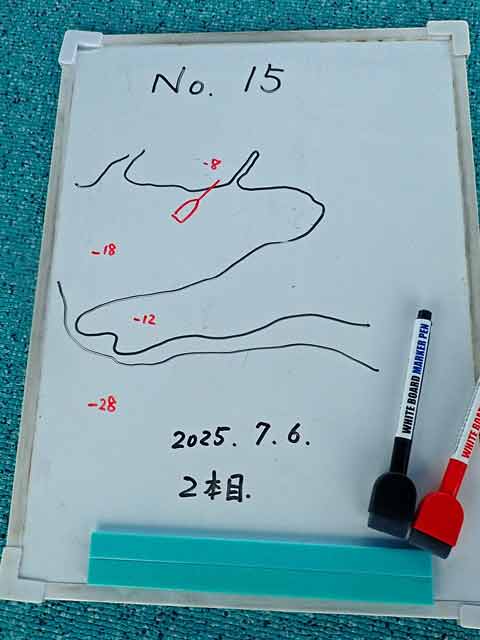 No. 15
-8
-18
-12
-28
2025. 7. 6.
2本目.
WHITE BOARD MARKER PEN
WHITE BOA